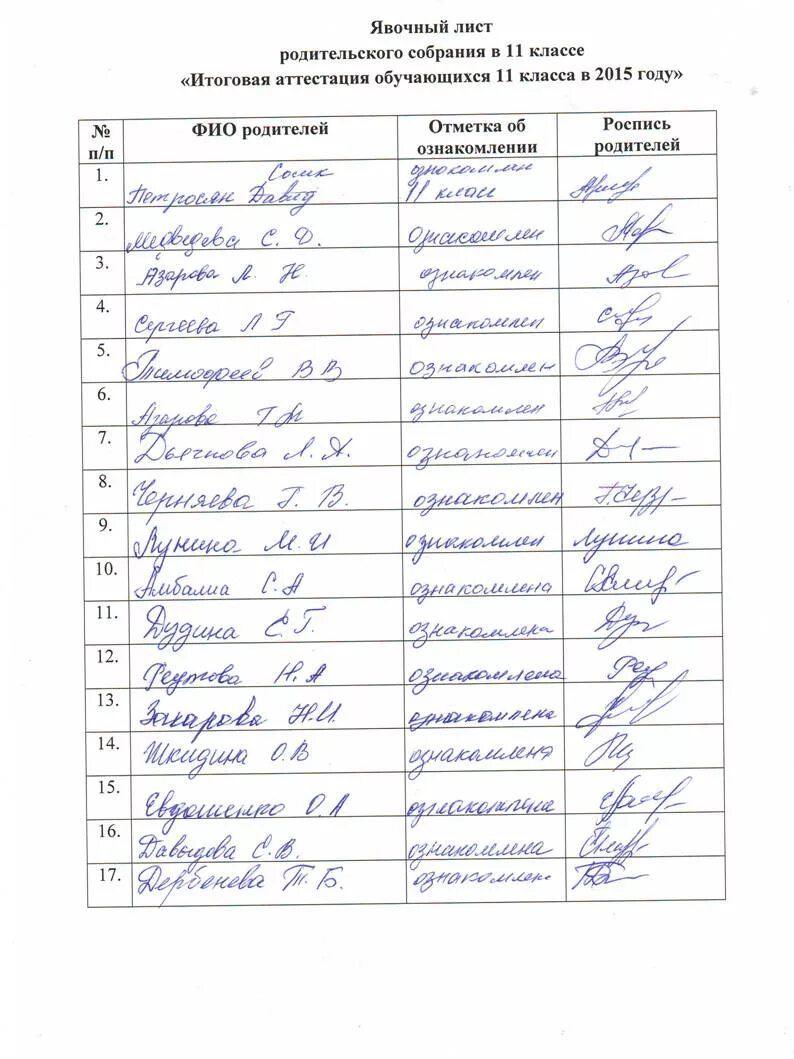 Явочный лист
родительского собрания в 11 классе
«Итоговая аттестация обучающихся 11 класса в 2015 году»
№ п/п ФИО родителей Отметка об ознакомлении Роспись родителей
1. Петросян Давид ознакомлен 11 класс
2. Медведева С. Д. ознакомлен
3. Азарова Л. Н. ознакомлен Азов
4. Сергеева Л Г ознакомлен
5. Тимофеев В В ознакомлен
6. Азарова ознакомлен
7. Дьячкова Л. А. ознакомлен
8. Черняева Г. В. ознакомлен
9. Лунина М. И ознакомлен Лунина
10. Амбалиа С. А ознакомлена
11. Дудина С. Г. ознакомлена
12. Н. А ознакомлена
13. Захарова Н.И. ознакомлена
14. Шкидина О.В ознакомлена
15. Евдошенко О. А ознакомлена
16. Давыдова С. В. ознакомлена
17. Дербенева Т. Б. ознакомлен